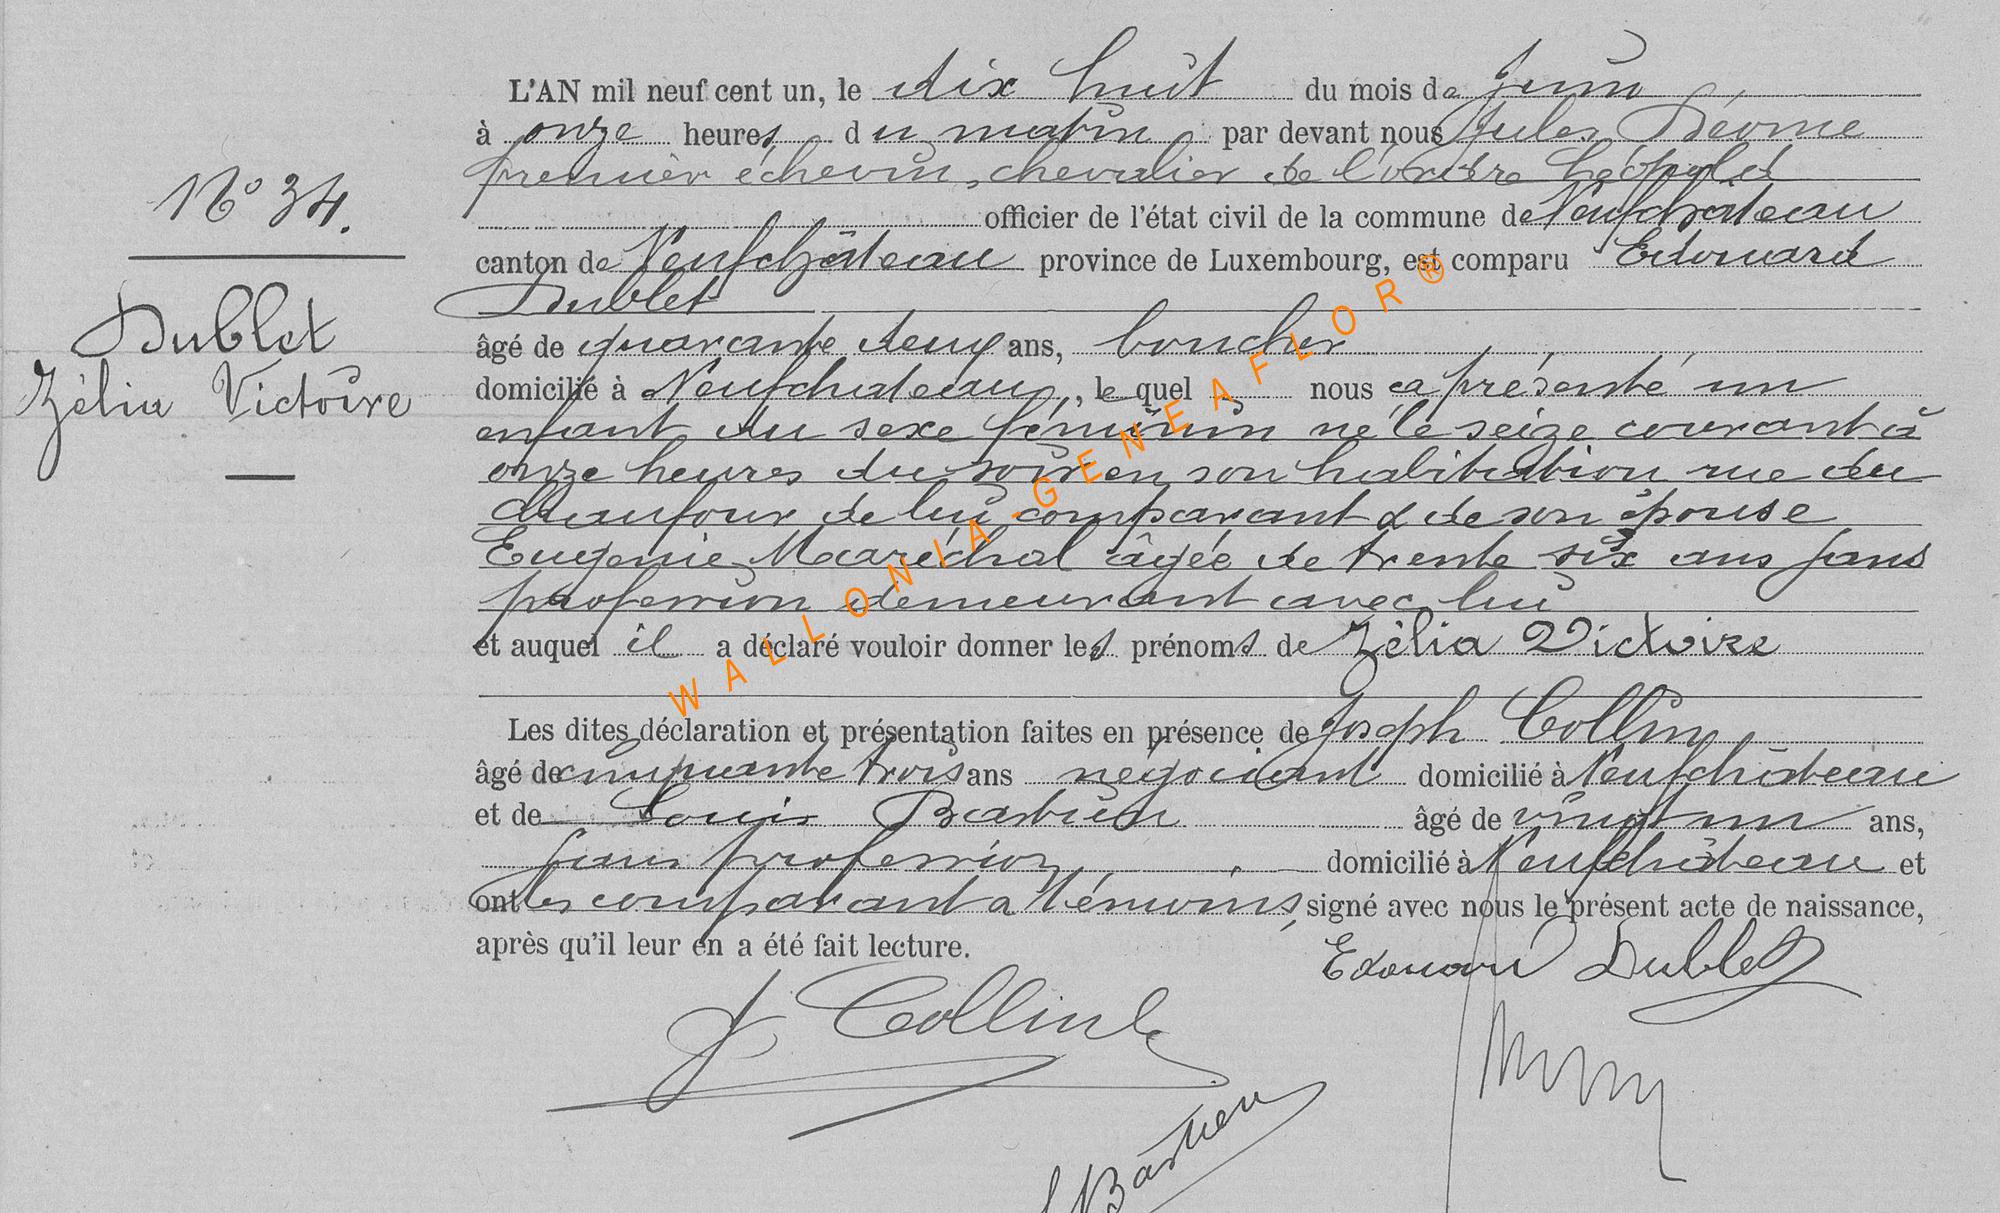 N° 34.
Dublet
Zélia Victoire
L'AN mil neuf cent un, le dix huit du mois de juin
à onze heures du matin par devant nous Jules Déome
premier échevin, chevalier de l'ordre Léopold
officier de l'état civil de la commune de Neufchateau
canton de Neufchâteau province de Luxembourg, est comparu Edouard
Dublet
âgé de quarante deux ans, boucher
domicilié à Neufchateau, le quel nous a présenté un
enfant du sexe féminin né le seize courant à
onze heures du soir en son habitation rue du
Chaufour de lui comparant & de son épouse
Eugenie Maréchal âgée de trente six ans sans
profession demeurant avec lui
et auquel il a déclaré vouloir donner les prénoms de Zélia Victoire
Les dites déclaration et présentation faites en présence de Joseph Collin
âgé de cinquante trois ans négociant domicilié à Neufchâteau
et de Louis Bastien âgé de vingt un ans,
sans profession domicilié à Neufchâteau et
ont les comparant & témoins, signé avec nous le présent acte de naissance,
après qu'il leur en a été fait lecture.
Edouard Dublet
J Collin
L Bastien
WALLONIA-GENEAFLOR®